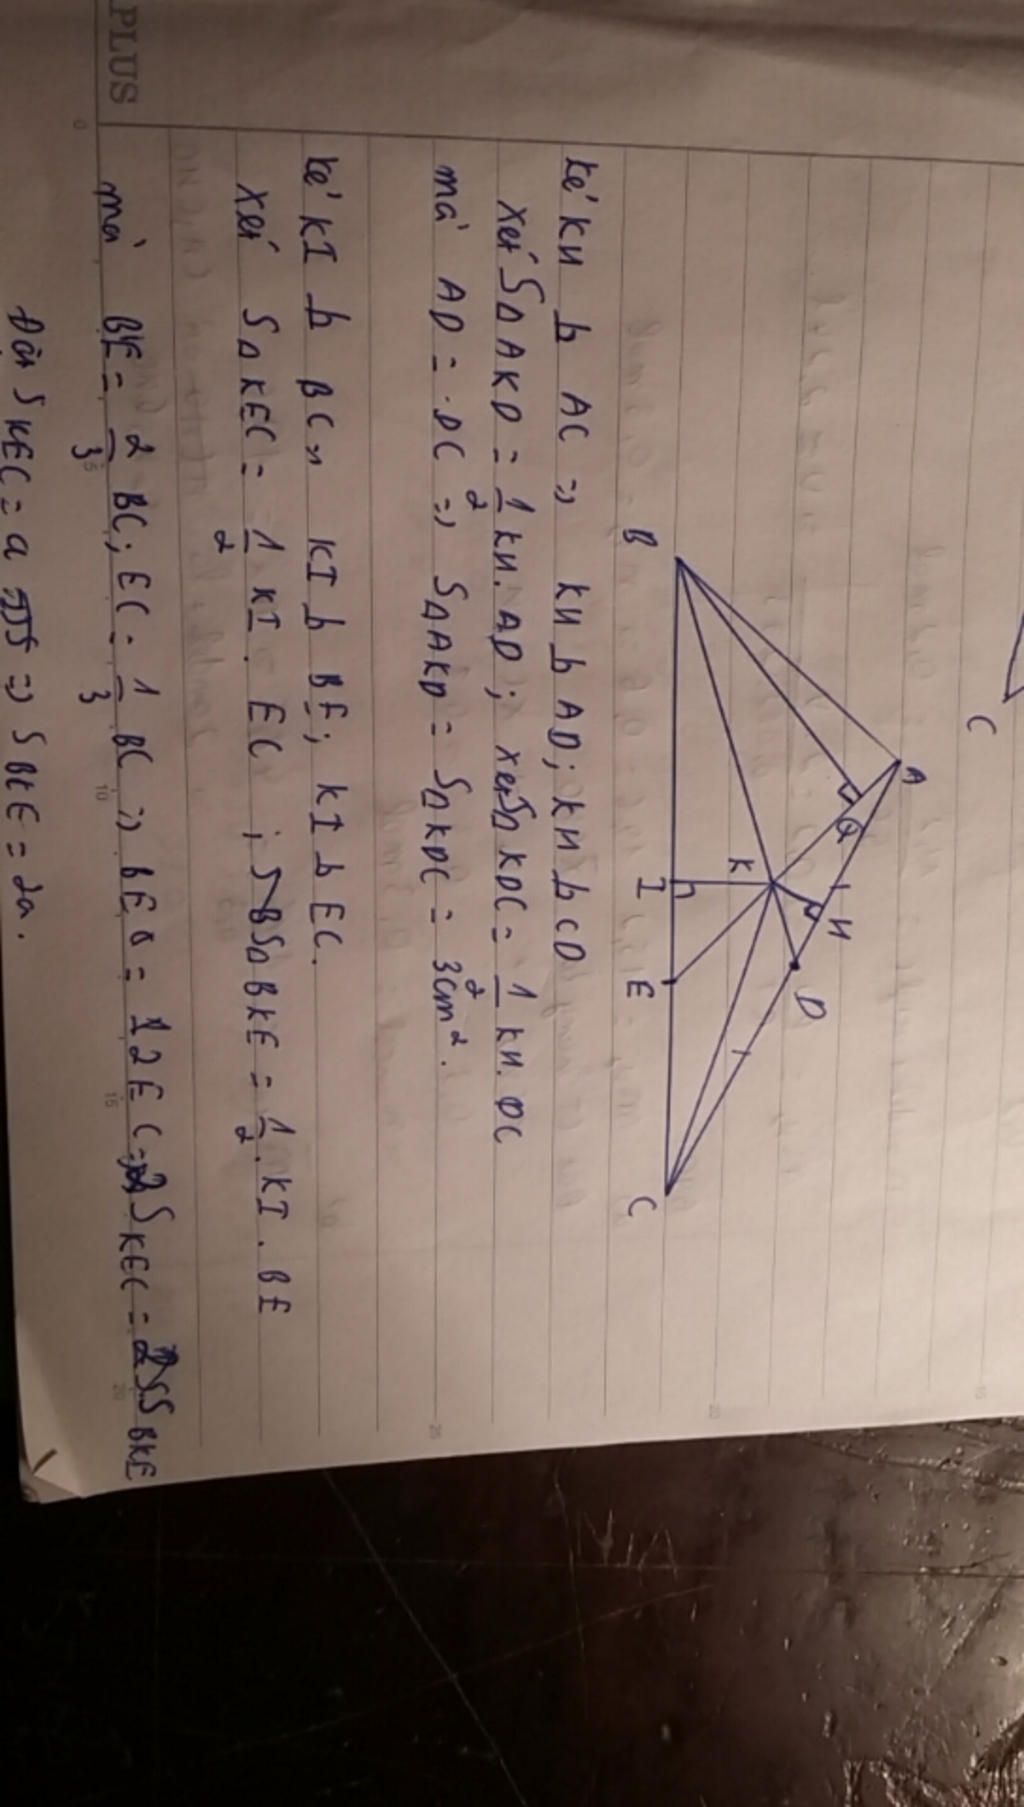 C
A
Q
H
D
B
K
I
E
C
kẻ KH ⊥ AC => KH ⊥ AD; KH ⊥ CD
xét SΔAKD = 1/2 KH. AD; xét SΔ KDC = 1/2 KH. DC
mà AD = DC => SΔAKD = SΔKDC = 3cm².
kẻ KI ⊥ BC => KI ⊥ BE; KI ⊥ EC.
xét SΔKEC = 1/2 KI. EC ; SΔBKE = 1/2. KI. BE
mà BE = 2/3 BC; EC = 1/3 BC => BE = 2EC => 2SKEC = SBKE
Đặt SKEC = a => SBKE = 2a.
PLUS
0
5
10
15
20
25
20